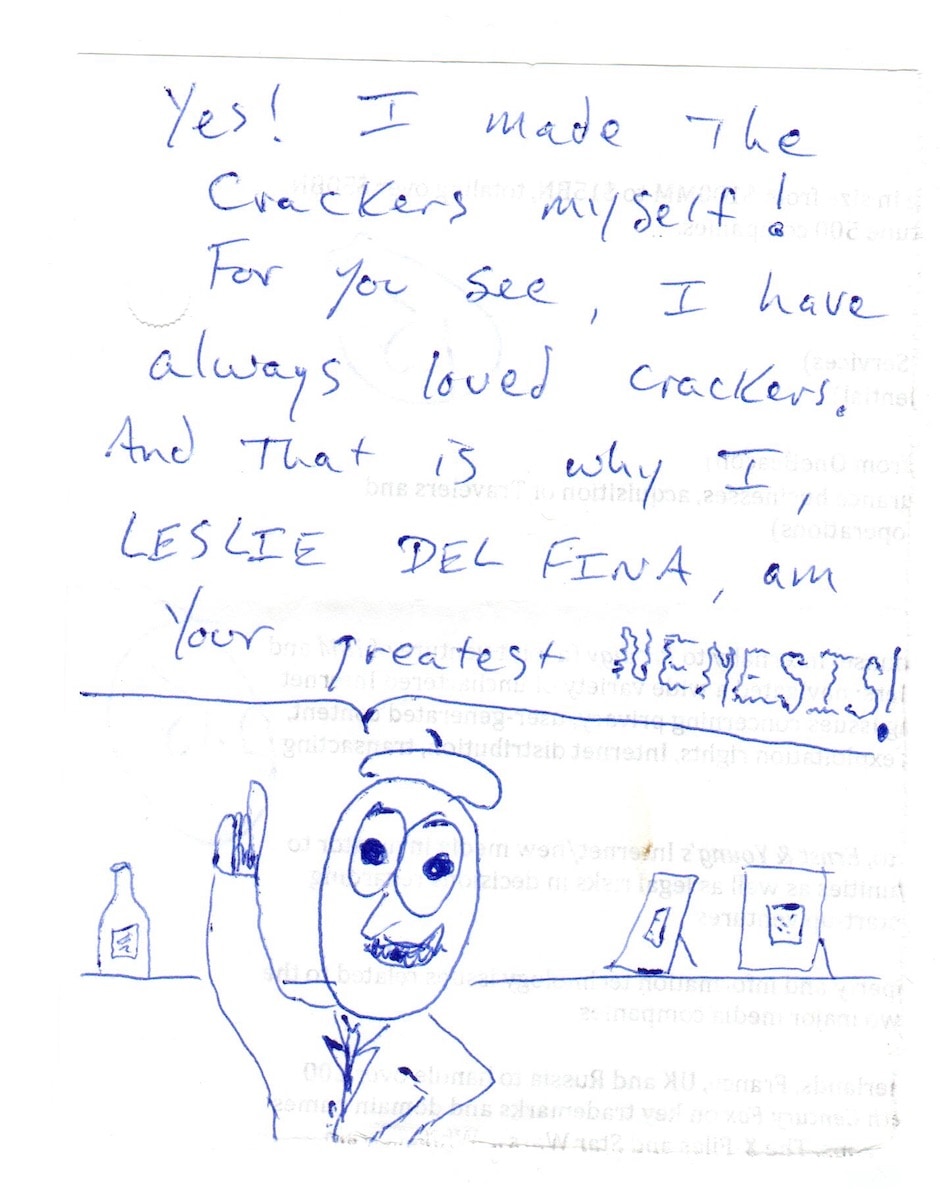 Yes! I made The
Crackers myself!
For you see, I have
always loved crackers.
And That is why I,
LESLIE DEL FINA, am
Your greatest